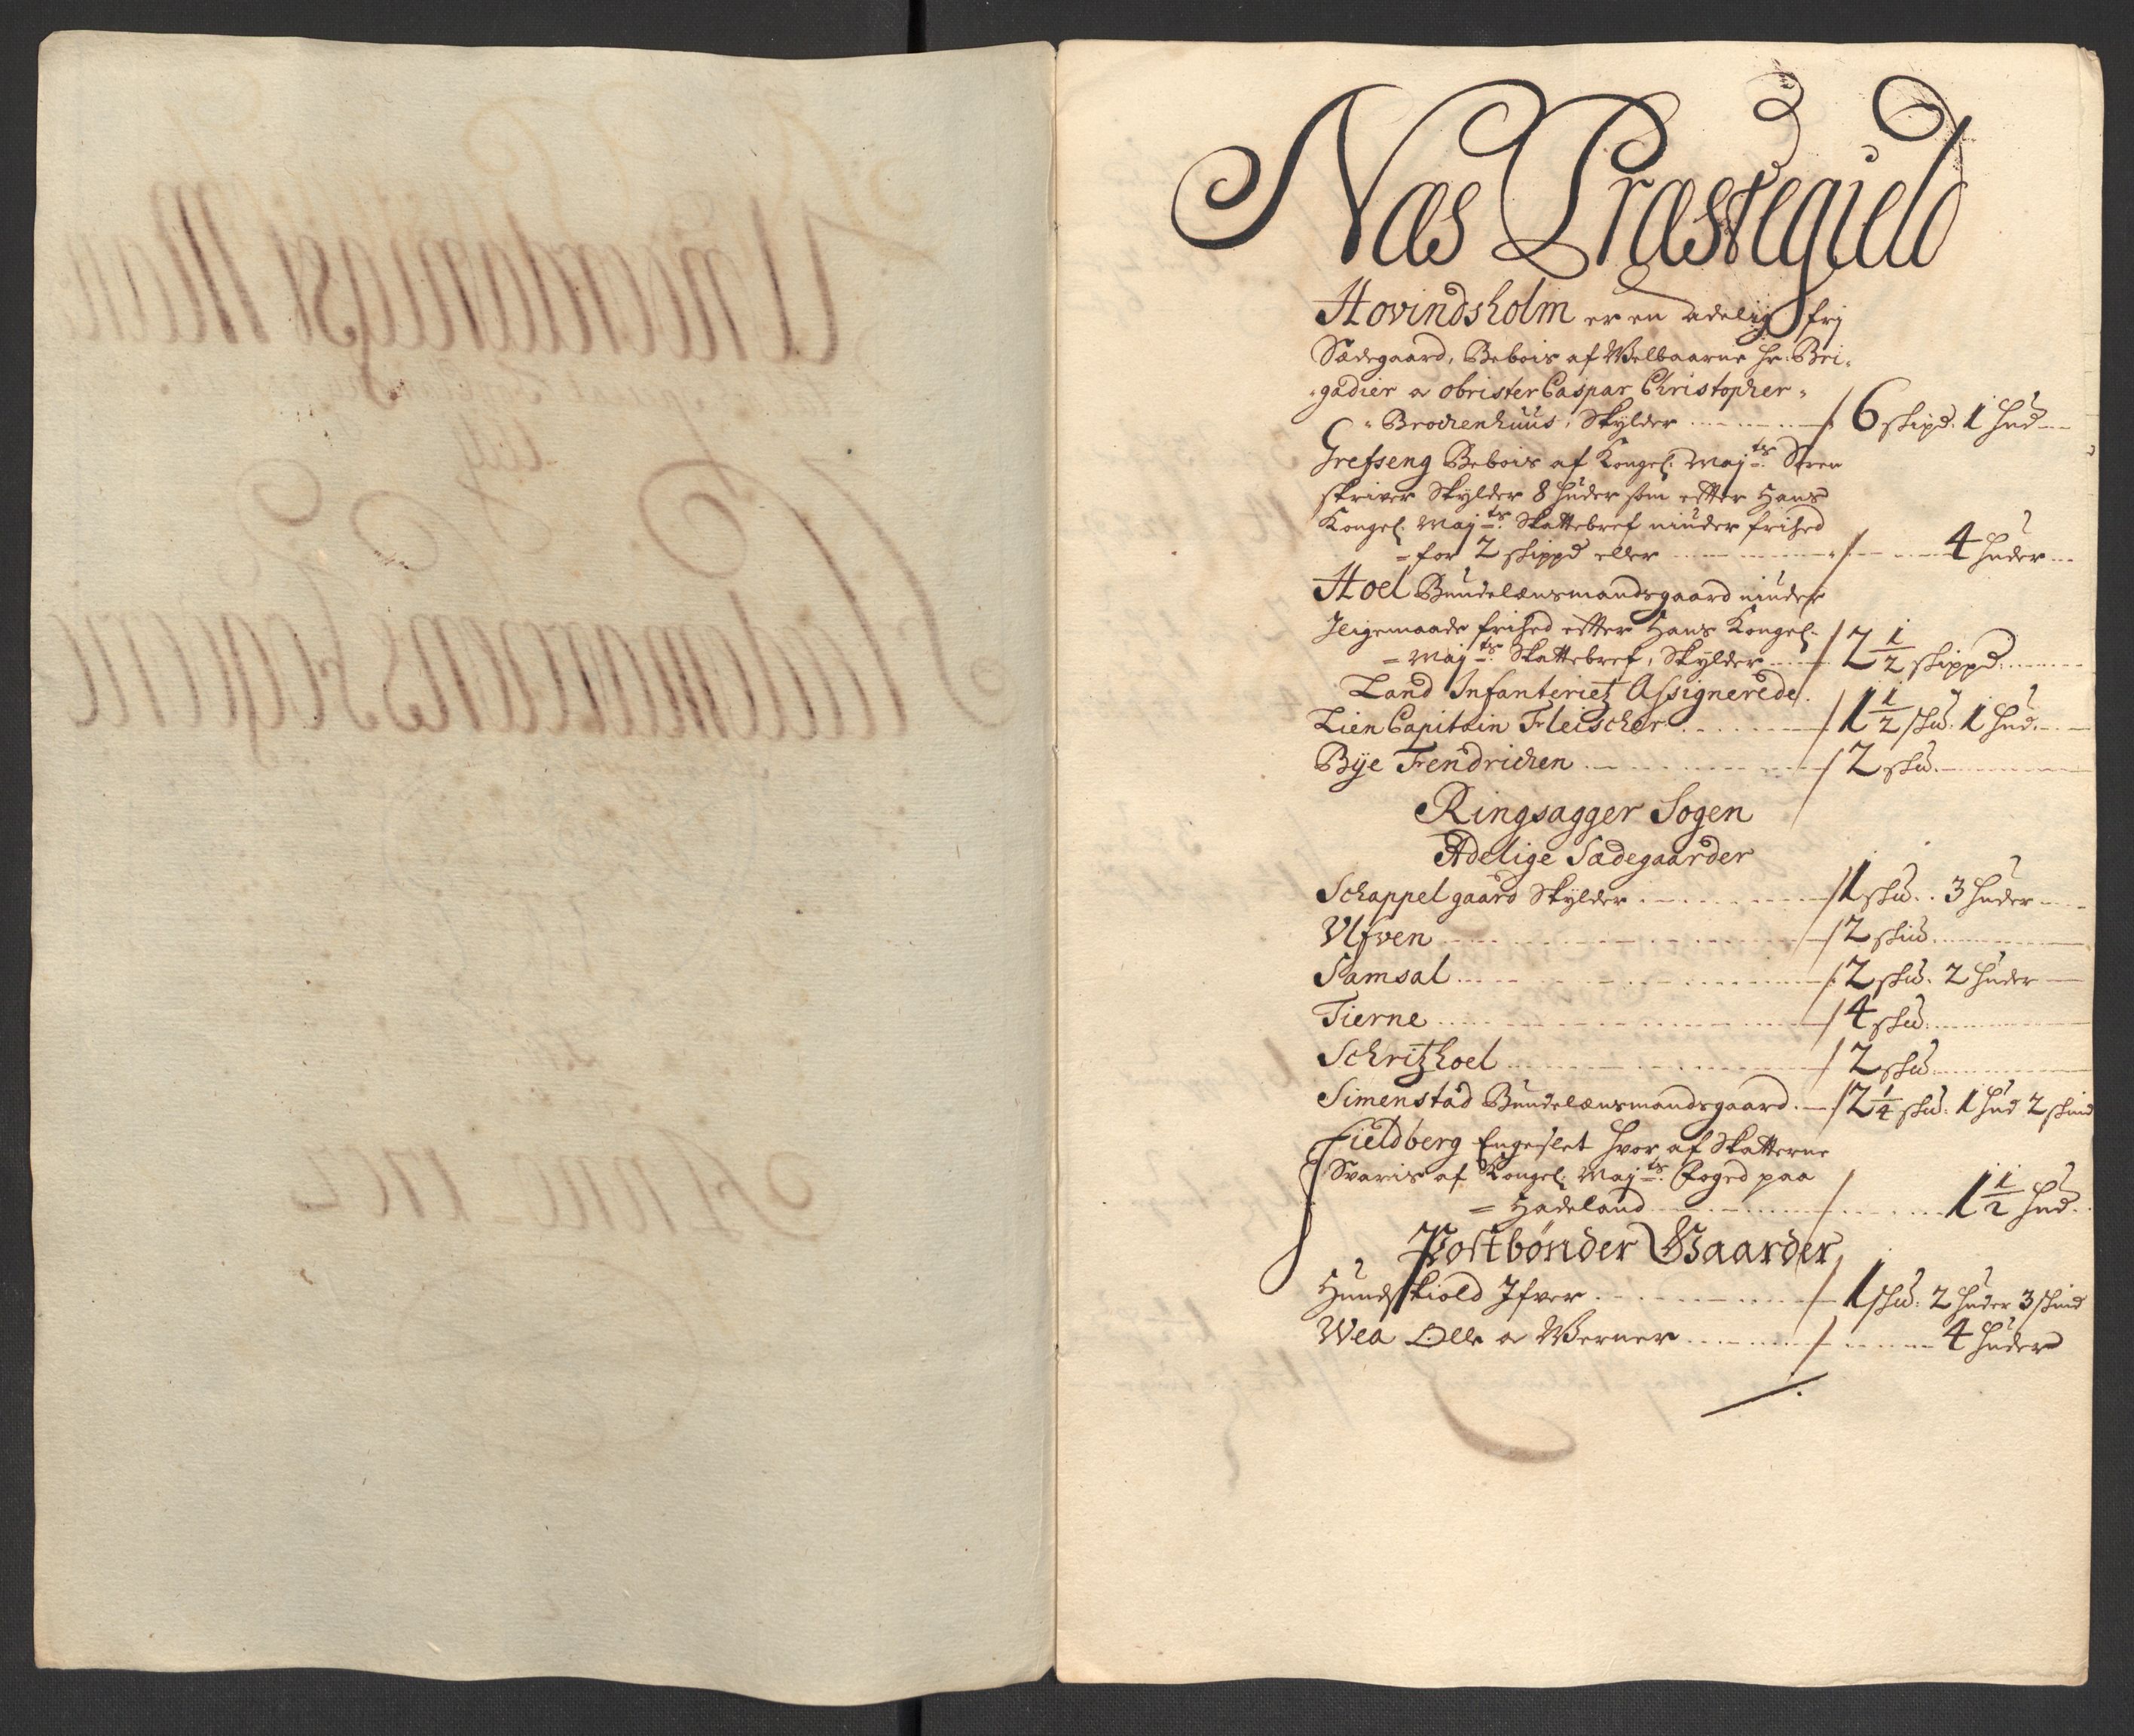 Næs Præstegield
Hovindsholm er en adelig frj
Sædegaard, Bebois af Welbaarne Hr: Bri-
gadier oc obrister Caspar Christopher
Brochenhuus, Skylder 6 skipd. 1 hud
Grefseng Bebois af Kongel: Majts: Soren
skriver Skylder 8 huder som efter Hans
Kongel: Majts: Skattebref niuder frihed
= for 2 skippd eller 4 huder
Hoel Bundelænsmandsgaard niuder
Jligemaade frihed efter Hans Kongel:
= Majts: Skattebref, Skylder 2 1/2 skippd
Land Infanteriet Assignerede.
Lien Capitain Fleischer 1 1/2 skd. 1 hud
Bye Fendrichen 2 skd.
Ringsagger Sogen
Adelige Sædegaarder
Schappel gaard Skylder 1 skd. 3 huder
Ulfven 2 skd.
Samsal 2 skd. 2 huder
Tierne 4 skd.
Schritzhoel 2 skd.
Simenstad Bundelænsmandsgaard 2 1/4 skd: 1 hud 2 skind
Fieldberg Engeslet hvor af Skatterne
Svaris af Kongel: Majts: foged paa
= Hadeland 1 1/2 hud.
Postbønder Gaarder
Hundskiold Ifver 1 skd: 2 huder 3 skind
Wea Olle oc Werner 4 huder